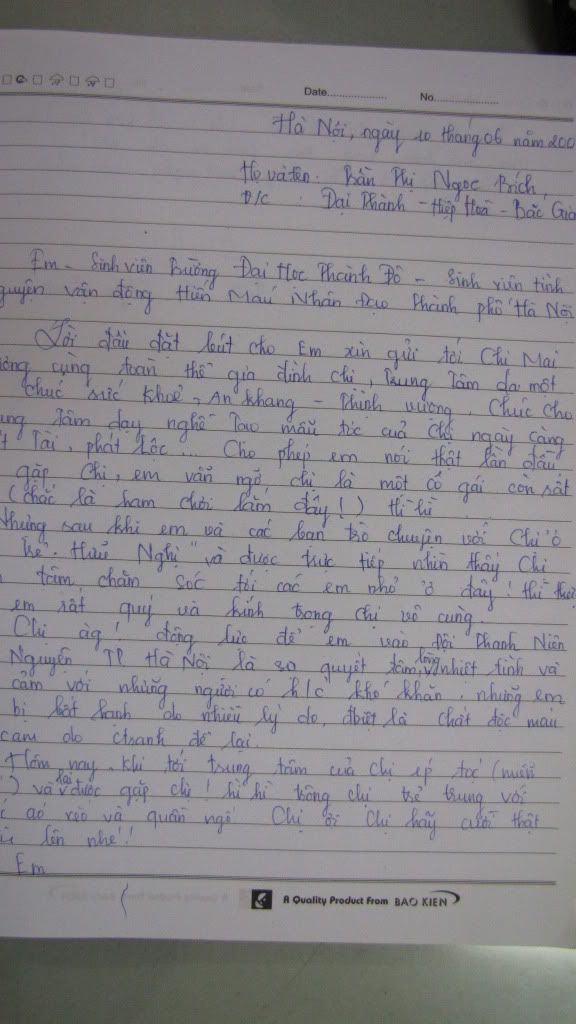 Date.................... No....................
Hà Nội, ngày 10 tháng 06 năm 200
Họ và tên. Trần Thị Ngọc Bích,
Đ/c : Đại Thành - Hiệp Hoà - Bắc Gia
Em - Sinh viên Trường Đại Học Thành Đô - Sinh viên tình
nguyện vận động Hiến Máu Nhân Đạo Thành phố Hà Nội
Lời đầu đặt bút cho Em xin gửi tới Chị Mai
cùng toàn thể gia đình chị, Trung Tâm dạ một
chúc sức khoẻ, An khang - Thịnh vượng. Chúc cho
ung Tâm dạy nghề Tạo mẫu tóc của chị ngày càng
Tài, phát Lộc... Cho phép em nói thật lần đầu
gặp Chị, em vẫn ngỡ chị là một cô gái còn rất
(chắc là ham chơi lắm đấy!) Hì hì
Nhưng sau khi em và các bạn trò chuyện với Chị ở
trẻ. Hữu Nghị" và được trực tiếp nhìn thấy Chị
tâm, chăm sóc tới các em nhỏ ở đây! thì thực
em rất quý và kính trọng chị vô cùng.
Chị ạ! động lực để em vào Đội Thanh Niên
Nguyện TP Hà Nội là sự quyết tâm, lòng nhiệt tình và
cảm với những người có h/c khó khăn, những em
bị bất hạnh do nhiều lý do, đbiệt là chất độc màu
cam do ctranh để lại.
Hôm nay, khi tới trung tâm của chị ép tóc (muối
) và lại được gặp chị! hì hì trông chị trẻ trung với
áo và quần ngố Chị ơi Chị hãy cười thật
lên nhé!
Em
A Quality Product From BAO KIEN